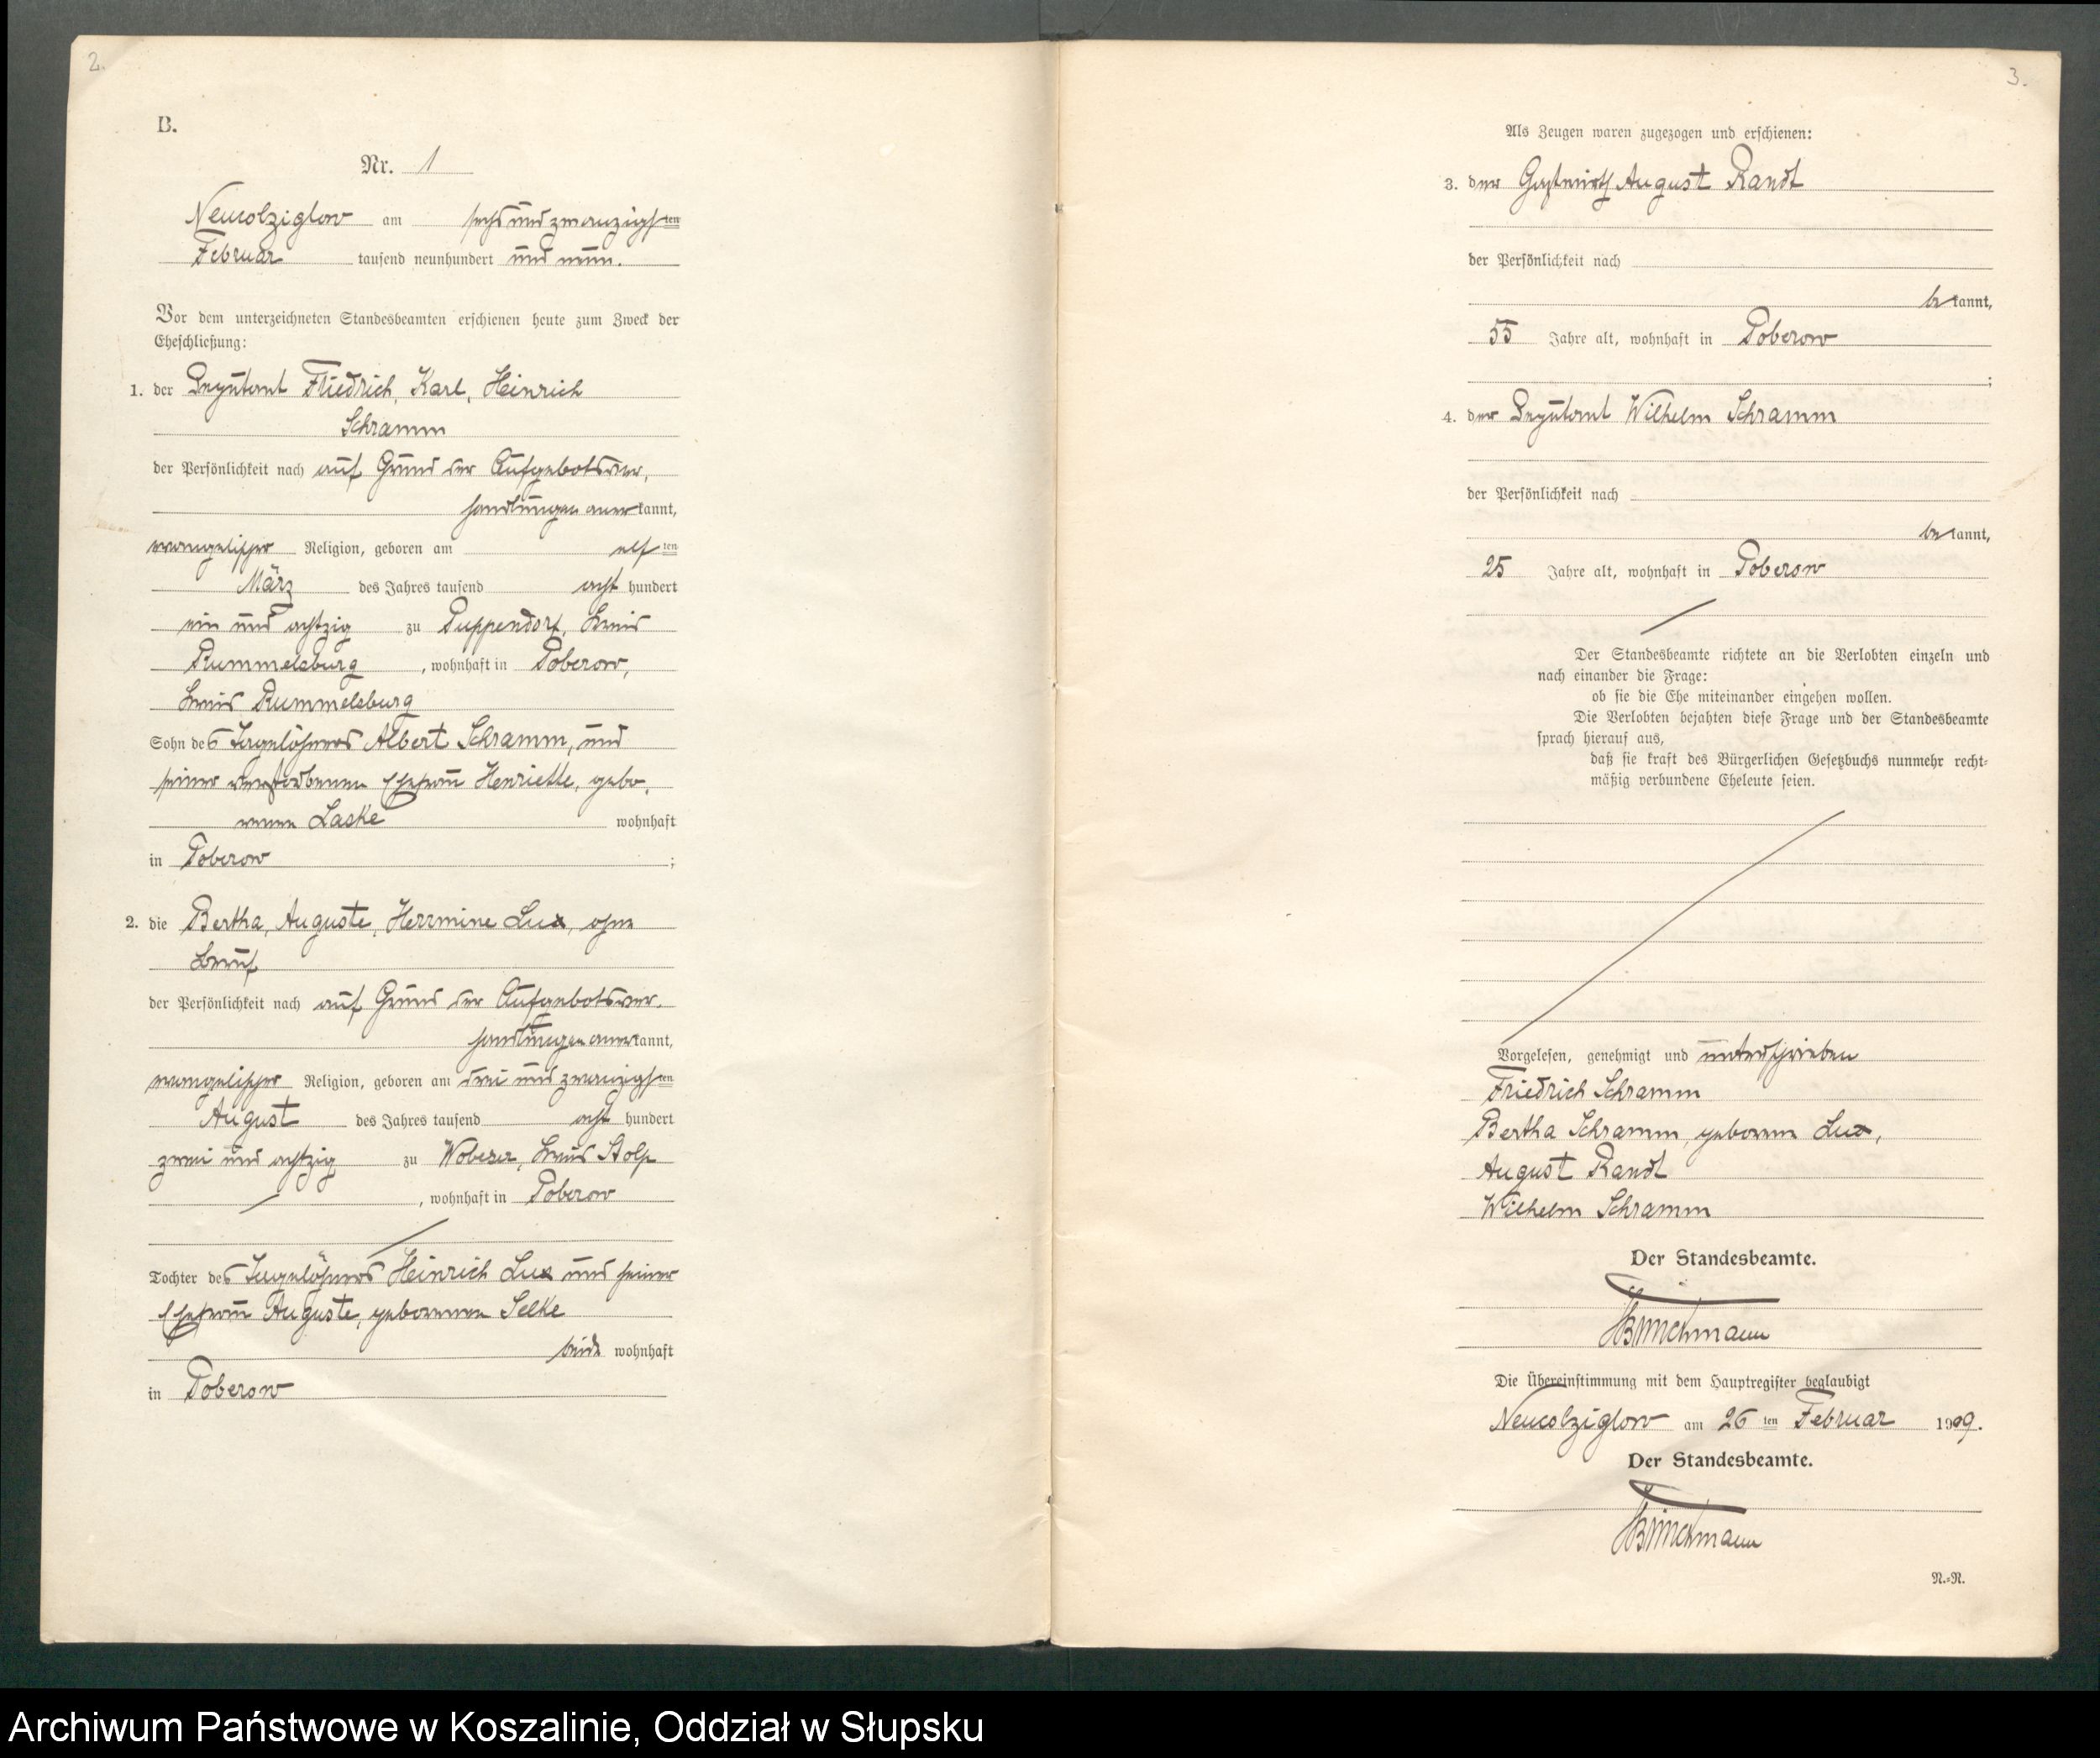 2.
B.
Nr. 1
Neucolziglow am sechsundzwanzigsten
Februar tausend neunhundert und neun.
Vor dem unterzeichneten Standesbeamten erschienen heute zum Zweck der
Eheschließung:
1. der Deputant Friedrich, Karl, Heinrich
Schramm
der Persönlichkeit nach auf Grund der Aufgebotsver,
handlungen anerkannt,
evangelischer Religion, geboren am elften
März des Jahres tausend acht hundert
ein und achtzig zu Puppendorf, Kreis
Rummelsburg, wohnhaft in Poberow,
Kreis Rummelsburg
Sohn des Tagelöhners Albert Schramm, und
seiner verstorbenen Ehefrau Henriette, gebo,
renen Laske wohnhaft
in Poberow;
2. die Bertha, Auguste, Herrmine Lux, ohne
Beruf
der Persönlichkeit nach auf Grund der Aufgebotsver,
handlungen anerkannt,
evangelischer Religion, geboren am drei und zwanzigsten
August des Jahres tausend acht hundert
zwei und achtzig zu Wobeser, Kreis Stolp
, wohnhaft in Poberow
Tochter des Tagelöhners Heinrich Lux und seiner
Ehefrau Auguste, geborenen Selke
beide wohnhaft
in Poberow
3.
Als Zeugen waren zugezogen und erschienen:
3. der Gastwirth August Randt
der Persönlichkeit nach
bekannt,
55 Jahre alt, wohnhaft in Poberow
;
4. der Deputant Wilhelm Schramm
der Persönlichkeit nach
bekannt,
25 Jahre alt, wohnhaft in Poberow
Der Standesbeamte richtete an die Verlobten einzeln und
nach einander die Frage:
ob sie die Ehe miteinander eingehen wollen.
Die Verlobten bejahten diese Frage und der Standesbeamte
sprach hierauf aus,
daß sie kraft des Bürgerlichen Gesetzbuchs nunmehr recht-
mäßig verbundene Eheleute seien.
Vorgelesen, genehmigt und unterschrieben
Friedrich Schramm
Bertha Schramm geborene Lux,
August Randt
Wilhelm Schramm
Der Standesbeamte.
Brinckmann
Die Übereinstimmung mit dem Hauptregister beglaubigt
Neucolziglow am 26 ten Februar 1909.
Der Standesbeamte.
Brinckmann
N.-N.
Archiwum Państwowe w Koszalinie, Oddział w Słupsku